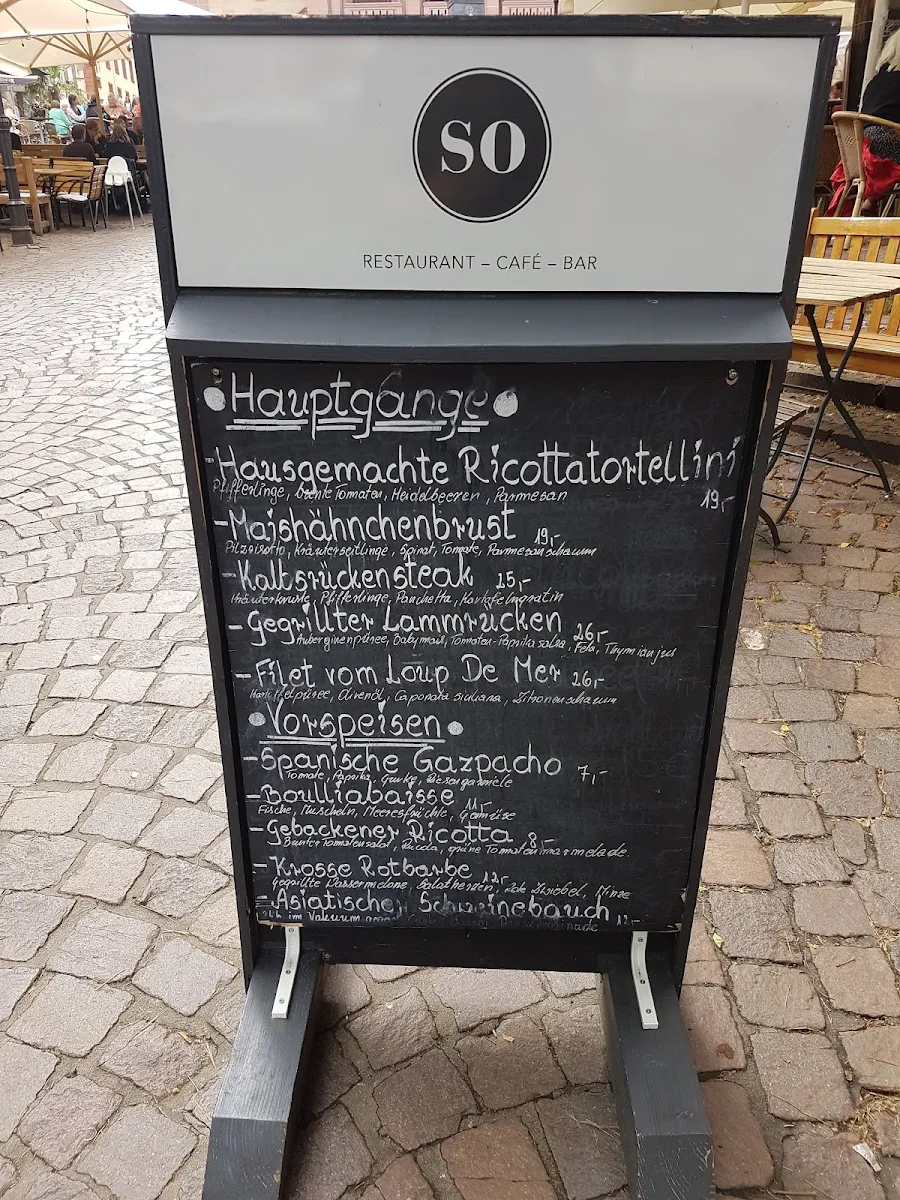 SO
RESTAURANT – CAFÉ – BAR
Hauptgänge
-Hausgemachte Ricottatortellini
Pfifferlinge, bunte Tomaten, Heidelbeeren, Parmesan 19,-
-Maishähnchenbrust 19,-
Pilzrisotto, Kräuterseitlinge, Spinat, Tomate, Parmesanschaum
-Kalbsrückensteak 25,-
Kräuterkruste, Pfifferlinge, Panchetta, Kartoffelngratin
-Gegrillter Lammrücken 26,-
Auberginenpüree, Babymais, Tomaten-Paprika salsa, Feta, Thymianjus
-Filet vom Loup De Mer 26,-
Kartoffelpüree, Olivenöl, Caponata siciliana, Zitronenschaum
Vorspeisen
-Spanische Gazpacho 7,-
Tomate, Paprika, Gurke, Riesengarnele
-Boulliabaisse 11,-
Fische, Muscheln, Meeresfrüchte, Gemüse
-Gebackener Ricotta 8,-
Bunter Tomatensalat, Rucola, grüne Tomatenmarmelade
-Krosse Rotbarbe 12,-
Gegrillte Wassermelone, Salatherzen, Rote Zwiebel, Minze
-Asiatischer Schweinebauch 12,-
im Vakuum